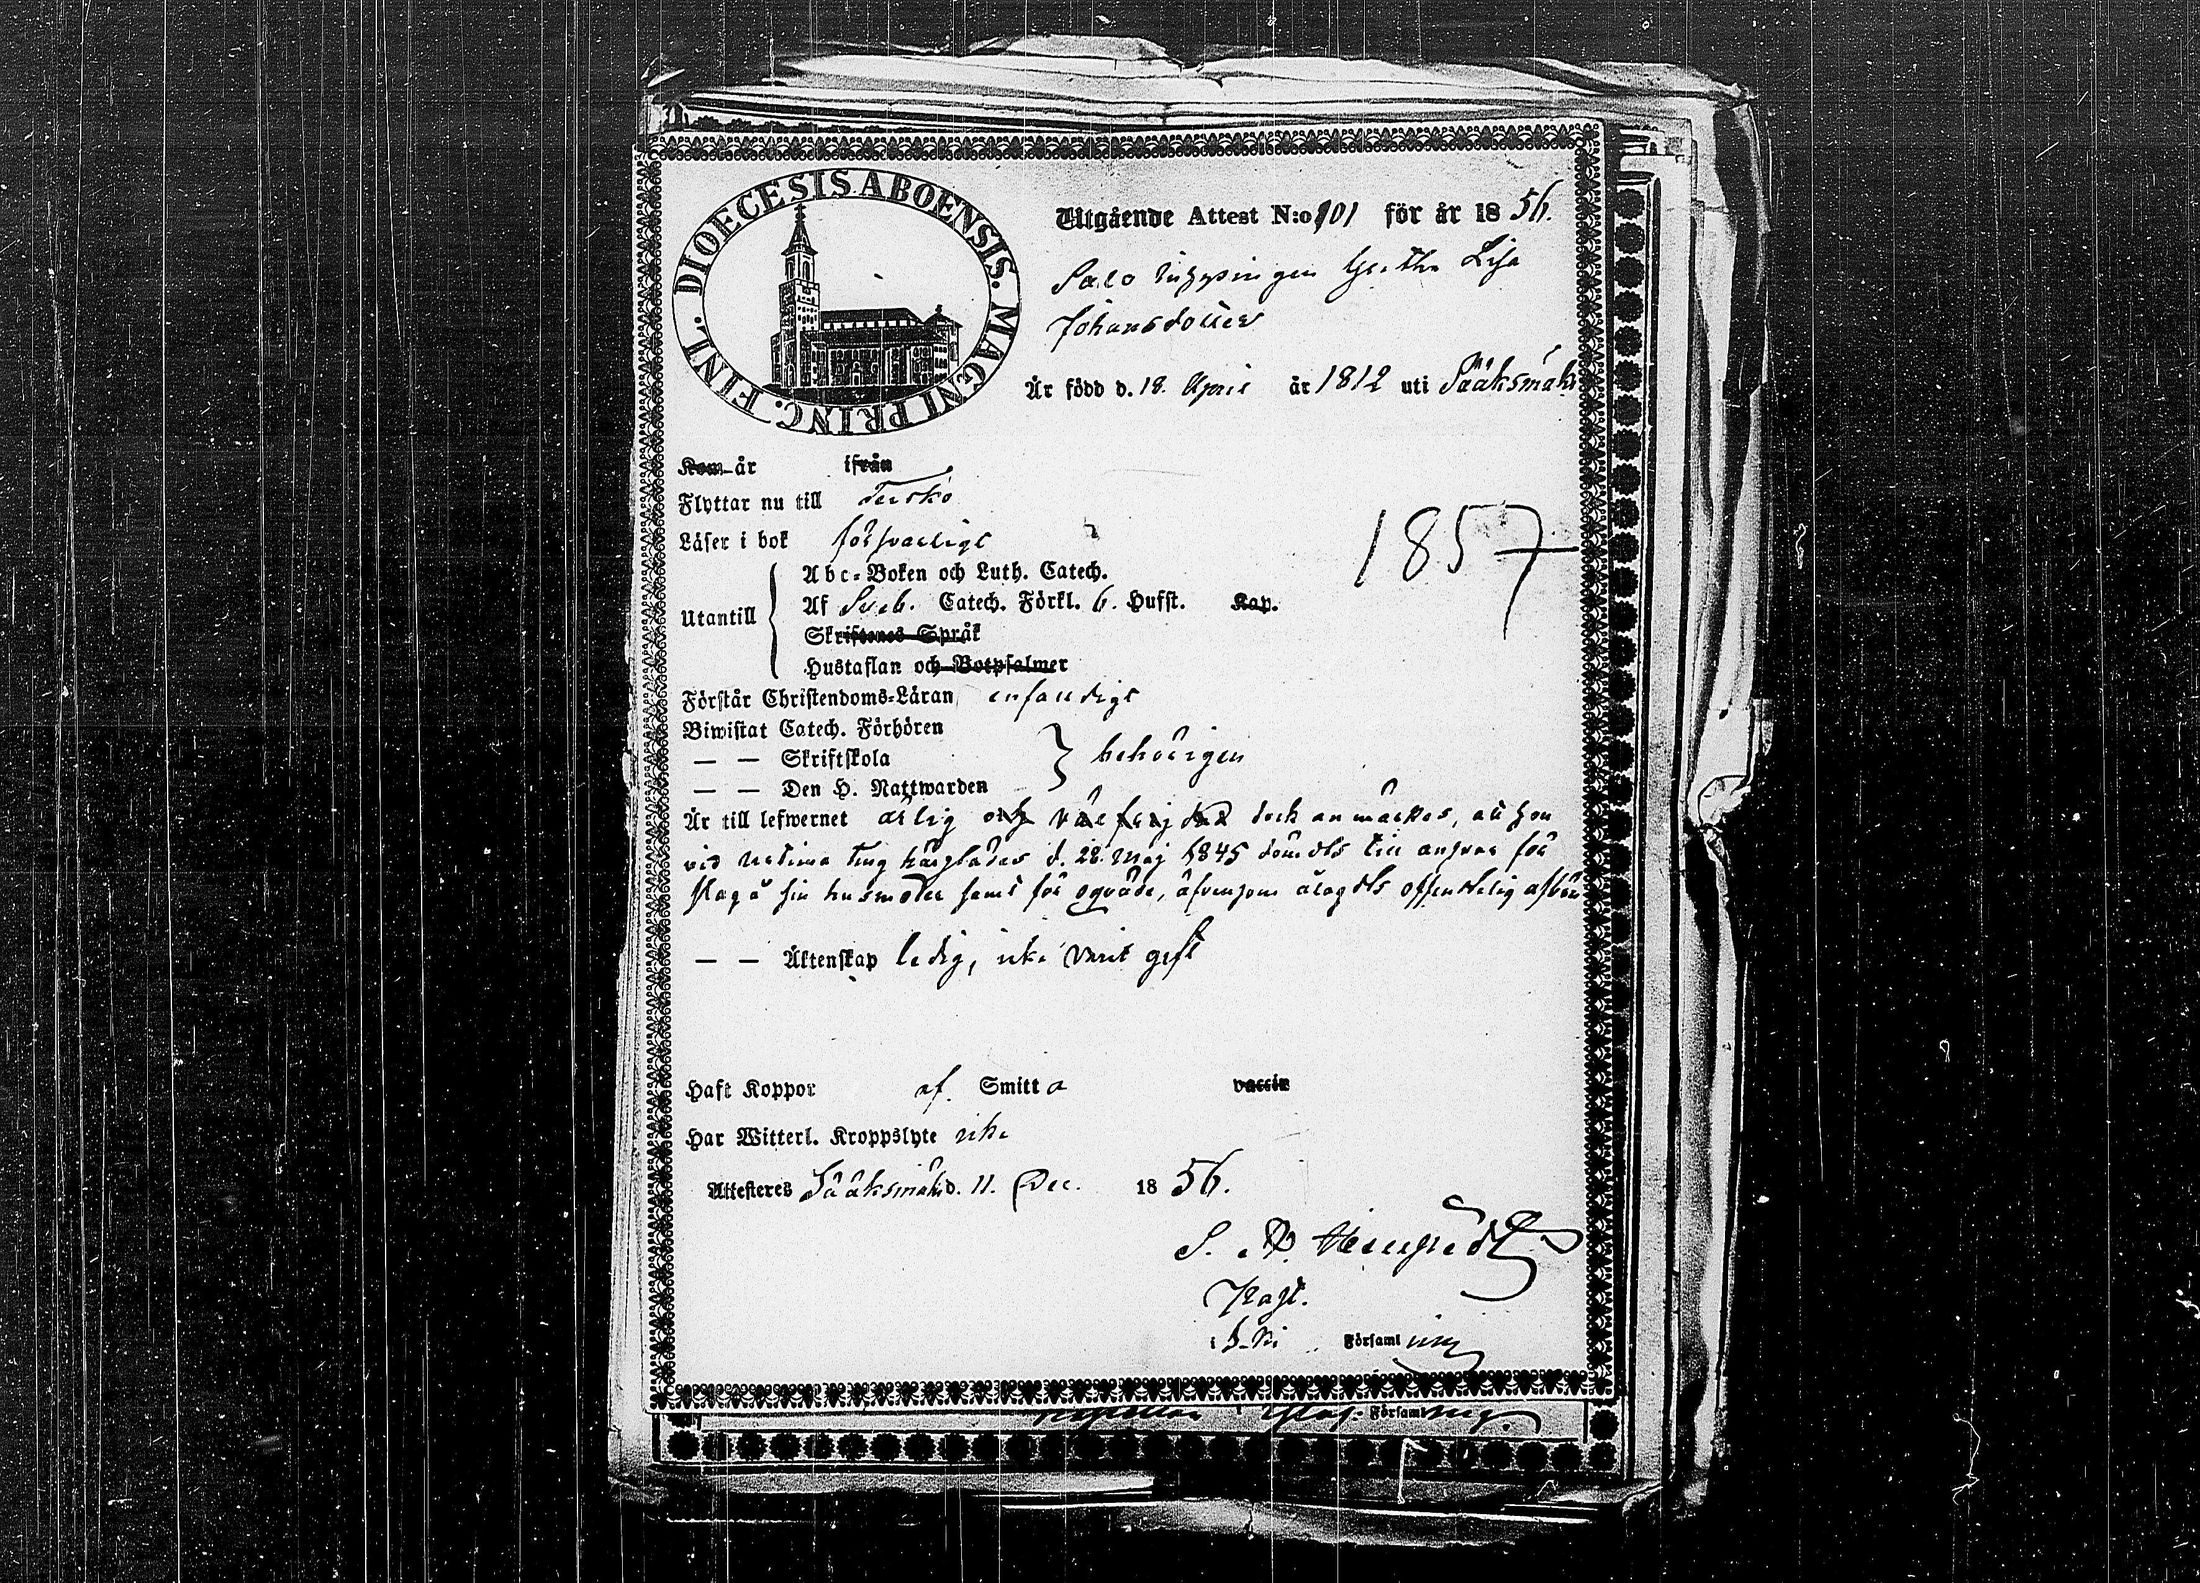 DIOECESIS ABOENSIS. MAGNI PRINC. FINL.
Utgående Attest N:o 101 för år 1856.
Salo Gretha Lisa
Johansdotter
Är född d. 18. April år 1812 uti Sääksmäki
Kom år ifrån
Flyttar nu till Tersko
Läser i bok försvarligt
1857
Abc-Boken och Luth. Catech.
Utantill Af Sveb. Catech. Förkl. 6. Hufst. Kap.
Skriftenes Språk
Hustaflan och Botpsalmer
Förstår Christendoms-Läran enfaldigt
Biwistat Catech. Förhören
— — Skriftskola behörigen
— — Den H. Nattwarden
Är till lefwernet ärlig och väl dock anmärkes, att hon
vid Urdiala Ting d. 28. Maj 1845 dömdts till ansvar för
slag å sin husmoder samt för oqväde, äfvensom ålagdts offentelig afbön
— — Äktenskap ledig, icke varit gift
Haft Koppor af Smitta vaccin
Har Witterl. Kroppslyte icke
Attesteres Sääksmäki d. 11. Dec. 1856.
S. A.
Past.
i S-ki Församling
Församling.